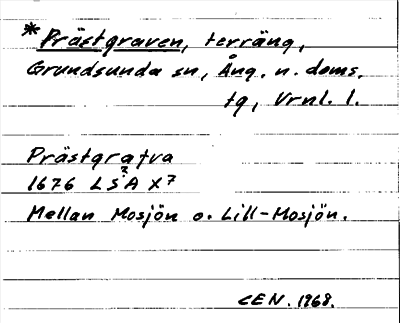 *Prästgraven, terräng,
Grundsunda sn, Ång. n. doms.
tg, Vrnl. l.
Prästgrafva
1676 LSA X7
?
Mellan Mosjön o. Lill-Mosjön.
CEN. 1968.